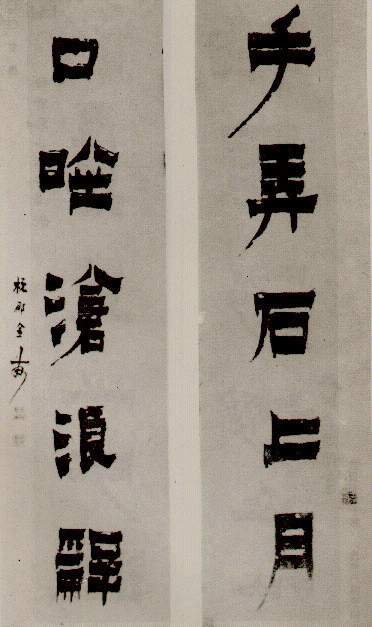 手弄石上月
口唫滄浪辭
杭郡金農